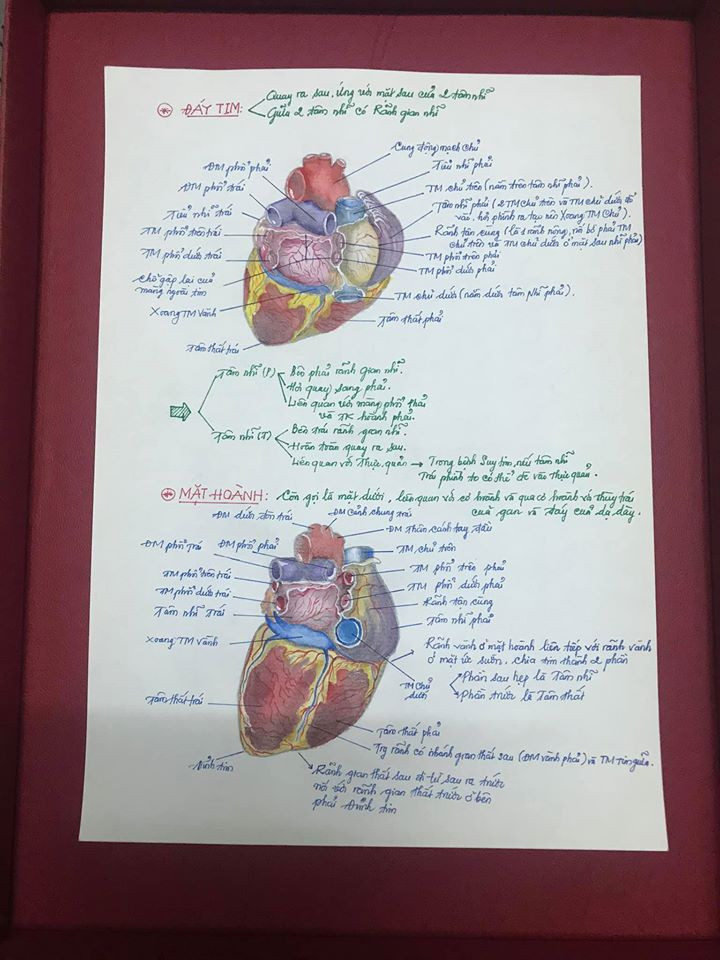 ĐÁY TIM:
Quay ra sau, ứng với mặt sau của 2 tâm nhĩ
Giữa 2 tâm nhĩ có Rãnh gian nhĩ
Cung động mạch chủ
ĐM phổi phải
Tiểu nhĩ phải
ĐM phổi trái
TM chủ trên (nằm trên tâm nhĩ phải).
Tiểu nhĩ trái
Tâm nhĩ phải (2 TM chủ trên và TM chủ dưới đổ
vào, hơi phình ra tạo nên Xoang TM Chủ).
TM phổi trên trái
Rãnh tận cùng (là 1 rãnh nông, nối bờ phải TM
chủ trên và TM chủ dưới ở mặt sau nhĩ phải)
TM phổi dưới trái
TM phổi trên phải
TM phổi dưới phải
Chỗ gấp lại của
màng ngoài tim
TM chủ dưới (nằm dưới tâm nhĩ phải).
Xoang TM vành
Tâm thất phải
Tâm thất trái
Tâm nhĩ (P)
Bên phải rãnh gian nhĩ.
Hơi quay sang phải.
Liên quan với màng phổi phải
và TK hoành phải.
Tâm nhĩ (T)
Bên trái rãnh gian nhĩ.
Hoàn toàn quay ra sau.
Liên quan với thực quản → Trong bệnh Suy tim, nếu tâm nhĩ
Trái phình to có thể đè vào thực quản.
MẶT HOÀNH: Còn gọi là mặt dưới, liên quan với cơ hoành và qua cơ hoành với thùy trái
của gan và đáy của dạ dày.
ĐM dưới đòn trái
ĐM cảnh chung trái
ĐM thân cánh tay đầu
ĐM phổi trái
ĐM phổi phải
TM chủ trên
TM phổi trên trái
TM phổi trên phải
TM phổi dưới trái
TM phổi dưới phải
Tâm nhĩ trái
Rãnh tận cùng
Tâm nhĩ phải
Xoang TM vành
Rãnh vành ở mặt hoành liên tiếp với rãnh vành
ở mặt ức sườn, chia tim thành 2 phần
Phần sau hẹp là Tâm nhĩ
Phần trước là Tâm thất
TM chủ
dưới
Tâm thất trái
Tâm thất phải
Trg rãnh có nhánh gian thất sau (ĐM vành phải) và TM Tim giữa.
Đỉnh tim
Rãnh gian thất sau đi từ sau ra trước
nối với rãnh gian thất trước ở bên
phải đỉnh tim